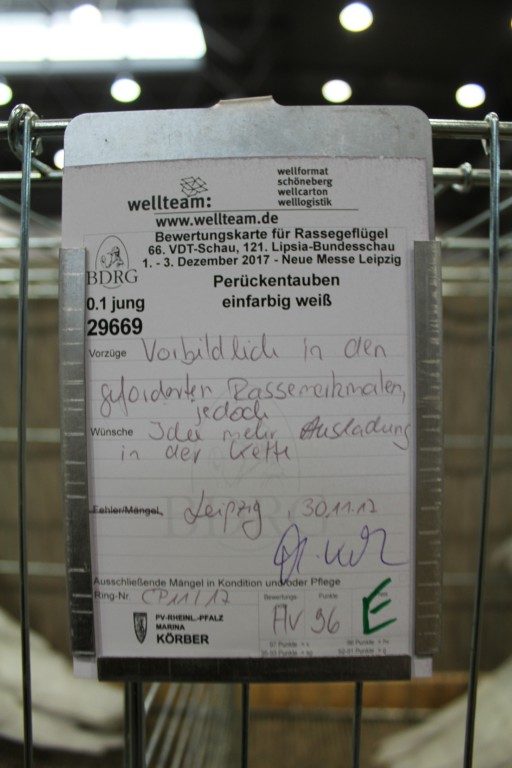 wellteam:
wellformat
schöneberg
wellcarton
welllogistik
www.wellteam.de
BDRG
Bewertungskarte für Rassegeflügel
66. VDT-Schau, 121. Lipsia-Bundesschau
1. - 3. Dezember 2017 - Neue Messe Leipzig
Perückentauben
einfarbig weiß
0.1 jung
29669
Vorzüge Vorbildlich in den
geforderten Rassemerkmalen,
jedoch
Wünsche Idee mehr Ausladung
in der Kette
Fehler/Mängel Leipzig, 30.11.17
Ausschließende Mängel in Kondition und/oder Pflege
Ring-Nr. CP11/17
Bewertungs- Punkte
HV 96 E
PV-RHEINL.-PFALZ
MARINA
KÖRBER